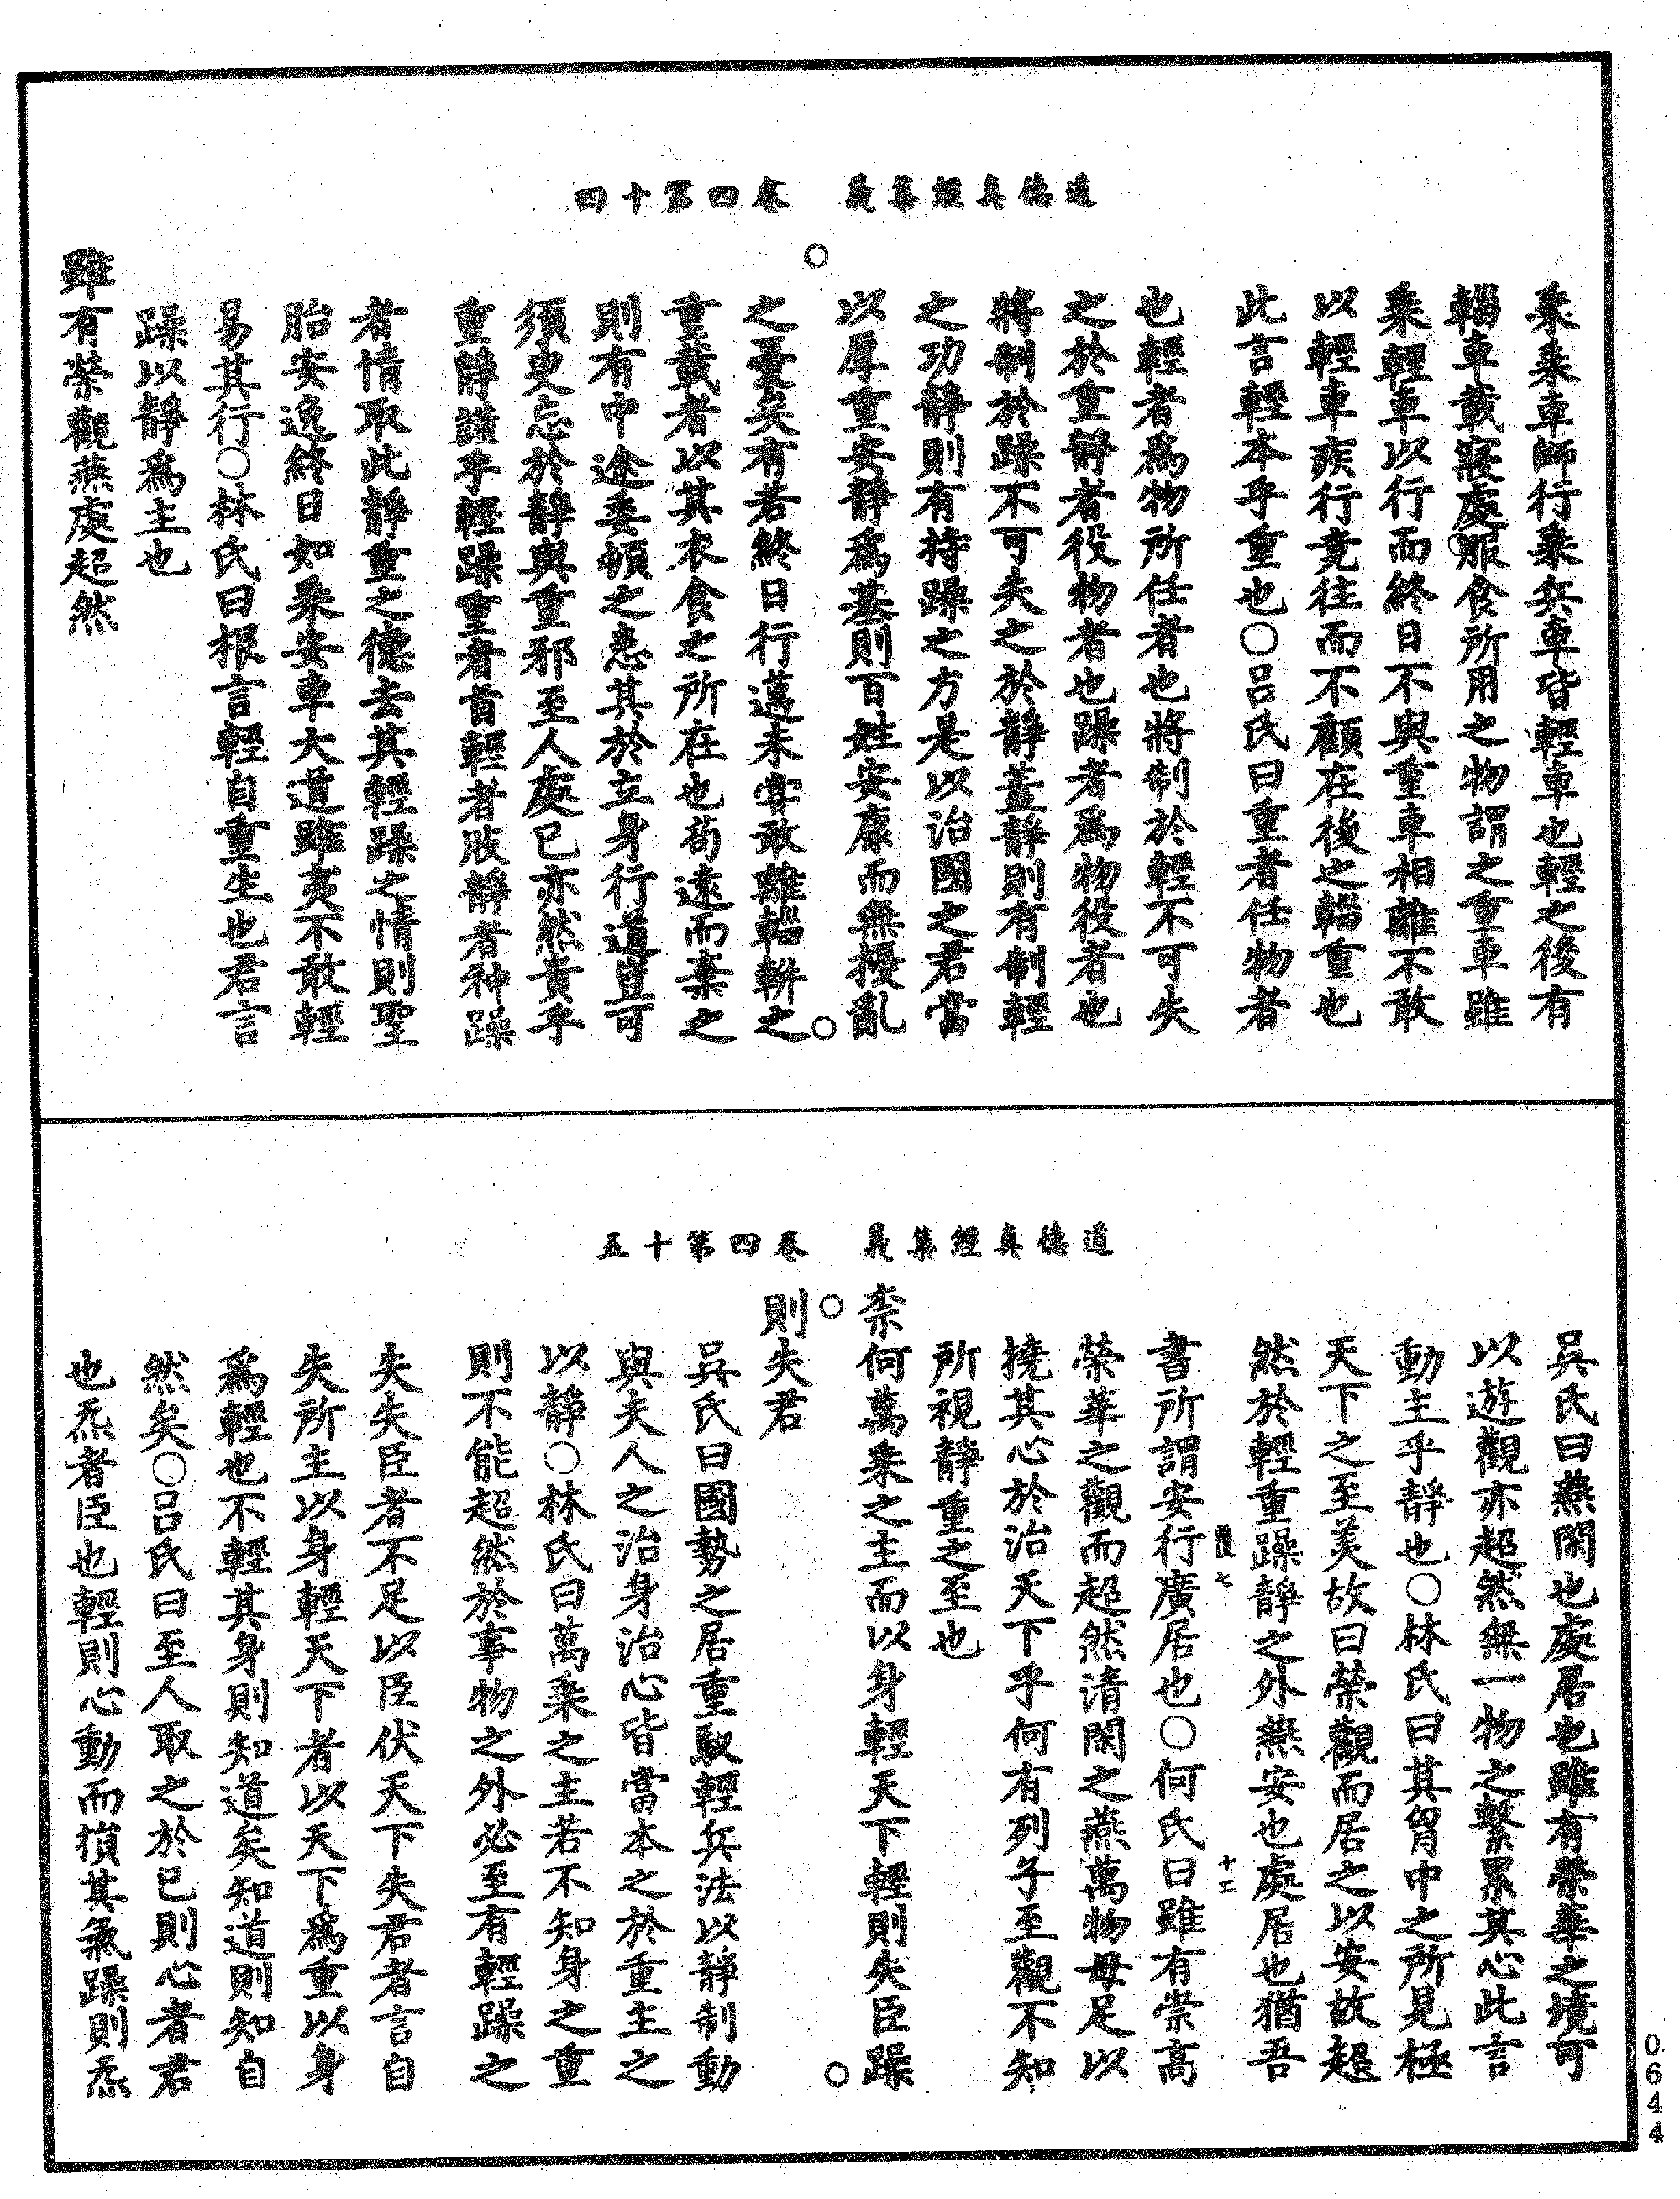 道德真經集義　卷四第十四
乗乗車師行乗兵車皆輕車也輕之後有
輜車載寢處服食所用之物謂之重車雖
乗輕車以行而終日不與重車相離不敢
以輕車疾行竟往而不顧在後之輜重也
此言輕本乎重也○呂氏曰重者任物者
也輕者為物所任者也將制於輕不可失
之於重靜者役物者也躁者為物役者也
將制於躁不可失之於靜蓋靜則有制輕
之功靜則有持躁之方是以治國之君當
以厚重安靜為基則百姓安康而無擾亂
○
之憂矣有若終日行邁未甞敢離輜軿之
○
重載者以其衣食之所在也苟遠而棄之
則有中途委頓之患其於立身行道豈可
須臾忘於靜與重邪至人處已亦然貴乎
重靜誰乎輕躁重者首輕者肢靜者神躁
者情取此靜重之德去其輕躁之情則聖
胎安逸終日如乗安車大道雖夷不敢輕
易其行○林氏曰根言輕自重生也君言
躁以靜為主也
雖有榮觀燕處超然
道德真經集義　卷四第十五
吳氏曰燕閑也處居也雖有榮華之境可
以遊觀亦超然無一物之繫累其心此言
動主乎靜也○林氏曰其胷中之所見極
天下之至美故曰榮觀而居之以安故超
然於輕重躁靜之外燕安也處居也猶吾
七　十三
書所謂安行廣居也○何氏曰雖有崇高
榮華之觀而超然清閑之燕萬物毋足以
撓其心於治天下乎何有列子至觀不知
所視靜重之至也
柰何萬乗之主而以身輕天下輕則失臣躁
○
則失君
○
吳氏曰國勢之居重馭輕兵法以靜制動
與夫人之治身治心皆當本之於重主之
以靜○林氏曰萬乗之主若不知身之重
則不能超然於事物之外必至有輕躁之
失失臣者不足以臣伏天下失君者言自
失所主以身輕天下者以天下為重以身
為輕也不輕其身則知道矣知道則知自
然矣○呂氏曰至人取之於已則心者君
也炁者臣也輕則心動而損其氣躁則炁
0644